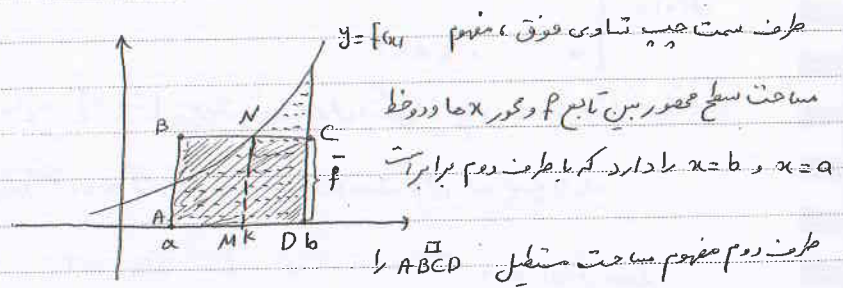 طرف سمت چپ تساوی فوق، مفهوم
مساحت سطح محصور بین تابع f و محور x ها و دو خط
x=a و x=b را دارد که با طرف دوم برابر است
طرف دوم مفهوم مساحت مستطیل ABCD را
y=f(x)
B
N
C
f̄
A
a
M
k
D
b